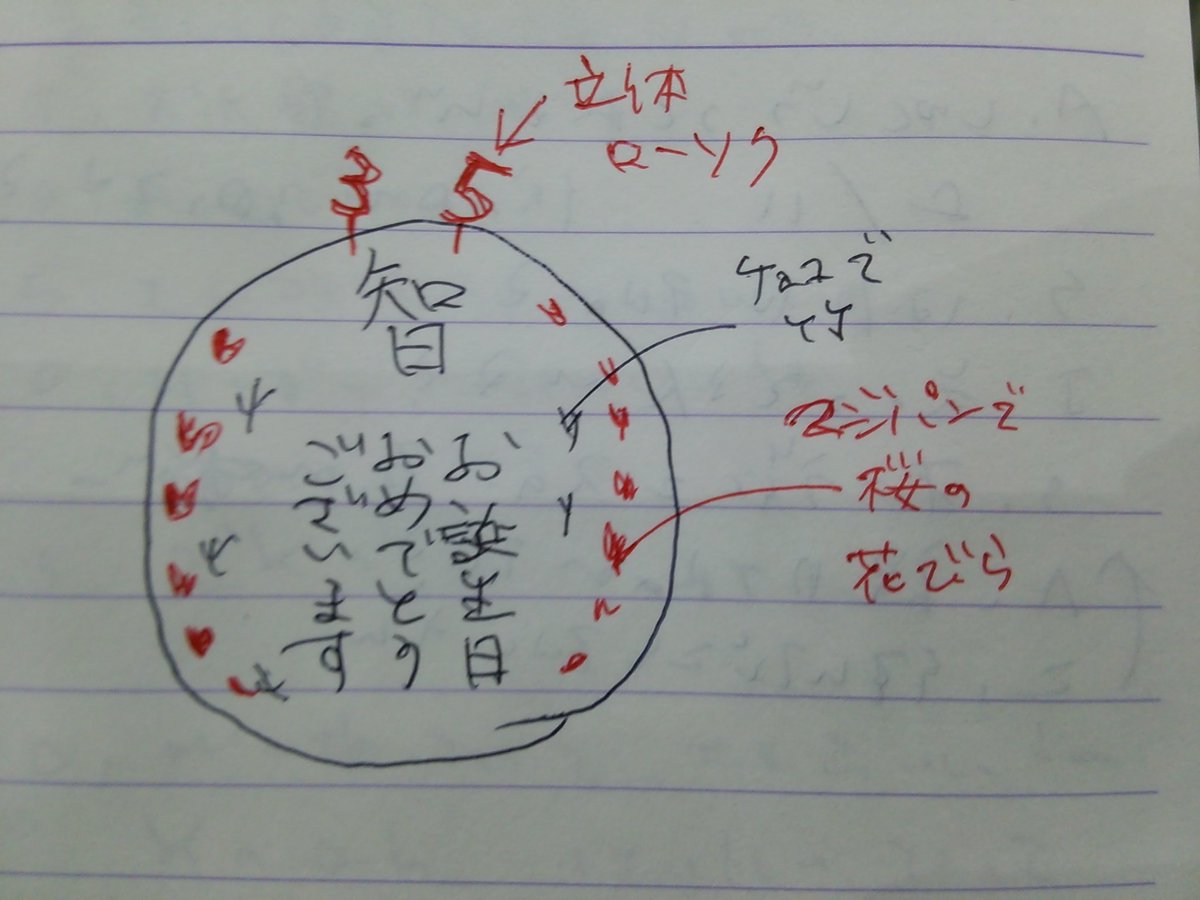 立体
ローソク
3 5
智
お誕生日
おめでとう
ございます
チョコで
竹
マジパンで
桜の
花びら